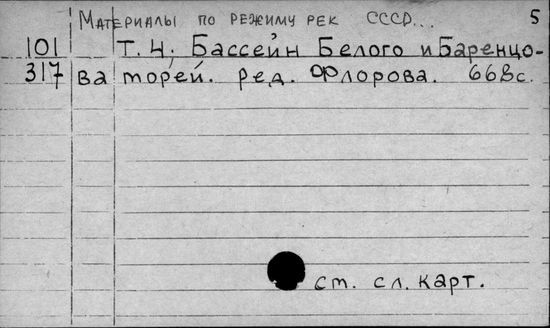 Материалы по режиму рек СССР... 5
101 Т. 4. Бассейн Белого и Баренцо-
317 ва морей. ред. Флорова. 668с.
ст. сл. карт.